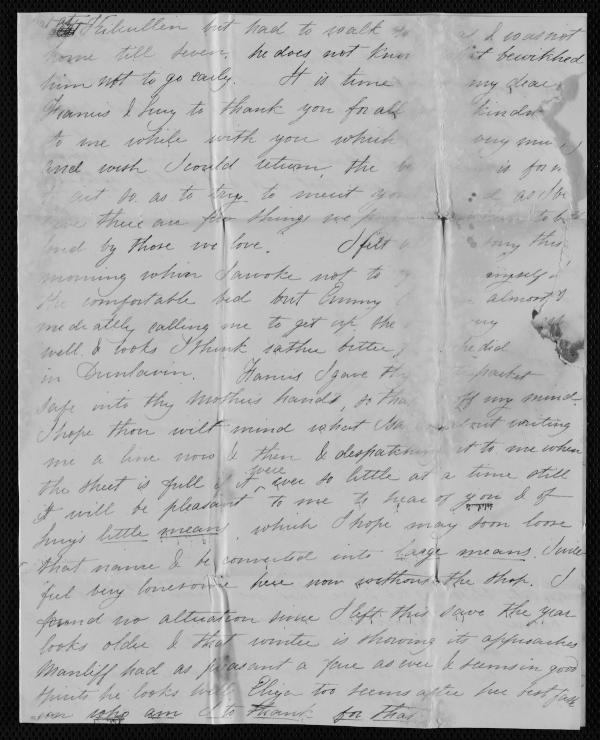 at Kilcullen but had to walk & was not
home till seven, he does not know what bewitched
him not to go early. It is time my dear
Francis & Lucy to thank you for all kindn
to me while with you which very mu
and wish I could return, the is for
act so as to try to merit as I be
there are few things we to be
lov'd by those we love. I felt this
morning when I awoke not to myself in
the comfortable bed but Emmy almost I
mediately calling me to get up, she very
well & looks I think rather better she did
in Dunlavin. Francis I gave the packet
safe into thy Mothers hands, so that off my mind.
I hope thou wilt mind what I said about writing
me a line now & then & despatching it to me when
the sheet is full if it were ever so little at a time still
it will be pleasant to me to hear of you & of
Lucys little means, which I hope may soon loose
that name & be converted into large means. I will
feel very lonesome here now without the shop. I
found no alteration since I left this save the year
looks older & that winter is showing its approaches
Manliff had as pleasant a face as ever & seems in good
spirits he looks well, Eliza too seems after her best fash
ion who am I to thank for that